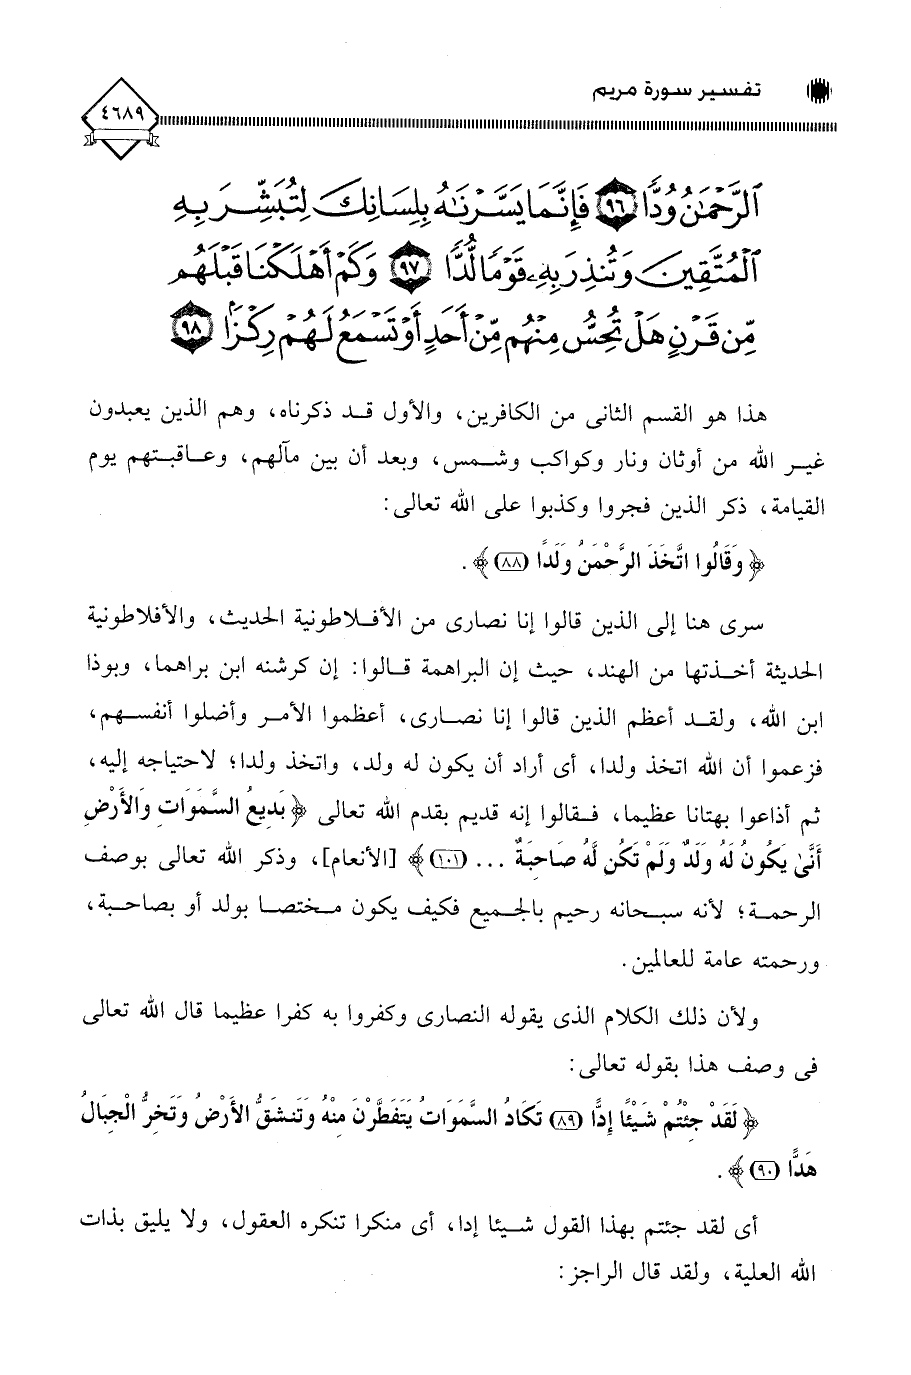 تفسير سورة مريم
٤٦٨٩
ٱلرَّحۡمَٰنُ وُدًّا ٩٦ فَإِنَّمَا يَسَّرۡنَٰهُ بِلِسَانِكَ لِتُبَشِّرَ بِهِ
ٱلۡمُتَّقِينَ وَتُنذِرَ بِهِۦ قَوۡمٗا لُّدّٗا ٩٧ وَكَمۡ أَهۡلَكۡنَا قَبۡلَهُم
مِّن قَرۡنٍ هَلۡ تُحِسُّ مِنۡهُم مِّنۡ أَحَدٍ أَوۡ تَسۡمَعُ لَهُمۡ رِكۡزَۢا ٩٨
هذا هو القسم الثانى من الكافرين، والأول قد ذكرناه، وهم الذين يعبدون
غير الله من أوثان ونار وكواكب وشمس، وبعد أن بين مآلهم، وعاقبتهم يوم
القيامة، ذكر الذين فجروا وكذبوا على الله تعالى:
﴿ وَقَالُوا اتَّخَذَ الرَّحْمَنُ وَلَدًا (٨٨) ﴾.
سرى هنا إلى الذين قالوا إنا نصارى من الأفلاطونية الحديث، والأفلاطونية
الحديثة أخذتها من الهند، حيث إن البراهمة قالوا: إن كرشنه ابن براهما، وبوذا
ابن الله، ولقد أعظم الذين قالوا إنا نصارى، أعظموا الأمر وأضلوا أنفسهم،
فزعموا أن الله اتخذ ولدا، أى أراد أن يكون له ولد، واتخذ ولدا؛ لاحتياجه إليه،
ثم أذاعوا بهتانا عظيما، فقالوا إنه قديم بقدم الله تعالى ﴿ بَدِيعُ السَّمَوَاتِ وَالأَرْضِ
أَنَّىٰ يَكُونُ لَهُ وَلَدٌ وَلَمْ تَكُن لَّهُ صَاحِبَةٌ ... (١٠١) ﴾ [الأنعام]، وذكر الله تعالى بوصف
الرحمة؛ لأنه سبحانه رحيم بالجميع فكيف يكون مختصا بولد أو بصاحبة،
ورحمته عامة للعالمين.
ولأن ذلك الكلام الذى يقوله النصارى وكفروا به كفرا عظيما قال الله تعالى
فى وصف هذا بقوله تعالى:
﴿ لَقَدْ جِئْتُمْ شَيْئًا إِدًّا (٨٩) تَكَادُ السَّمَوَاتُ يَتَفَطَّرْنَ مِنْهُ وَتَنشَقُّ الأَرْضُ وَتَخِرُّ الْجِبَالُ
هَدًّا (٩٠) ﴾.
أى لقد جئتم بهذا القول شيئا إدا، أى منكرا تنكره العقول، ولا يليق بذات
الله العلية، ولقد قال الراجز: